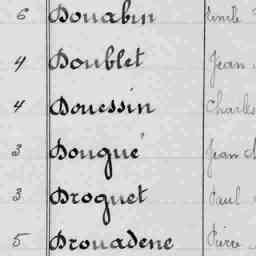 6 Douabin Emile
4 Doublet Jean
4 Douessin Charles
3 Dougué Jean
3 Droguet Paul
5 Drouadene Pierre